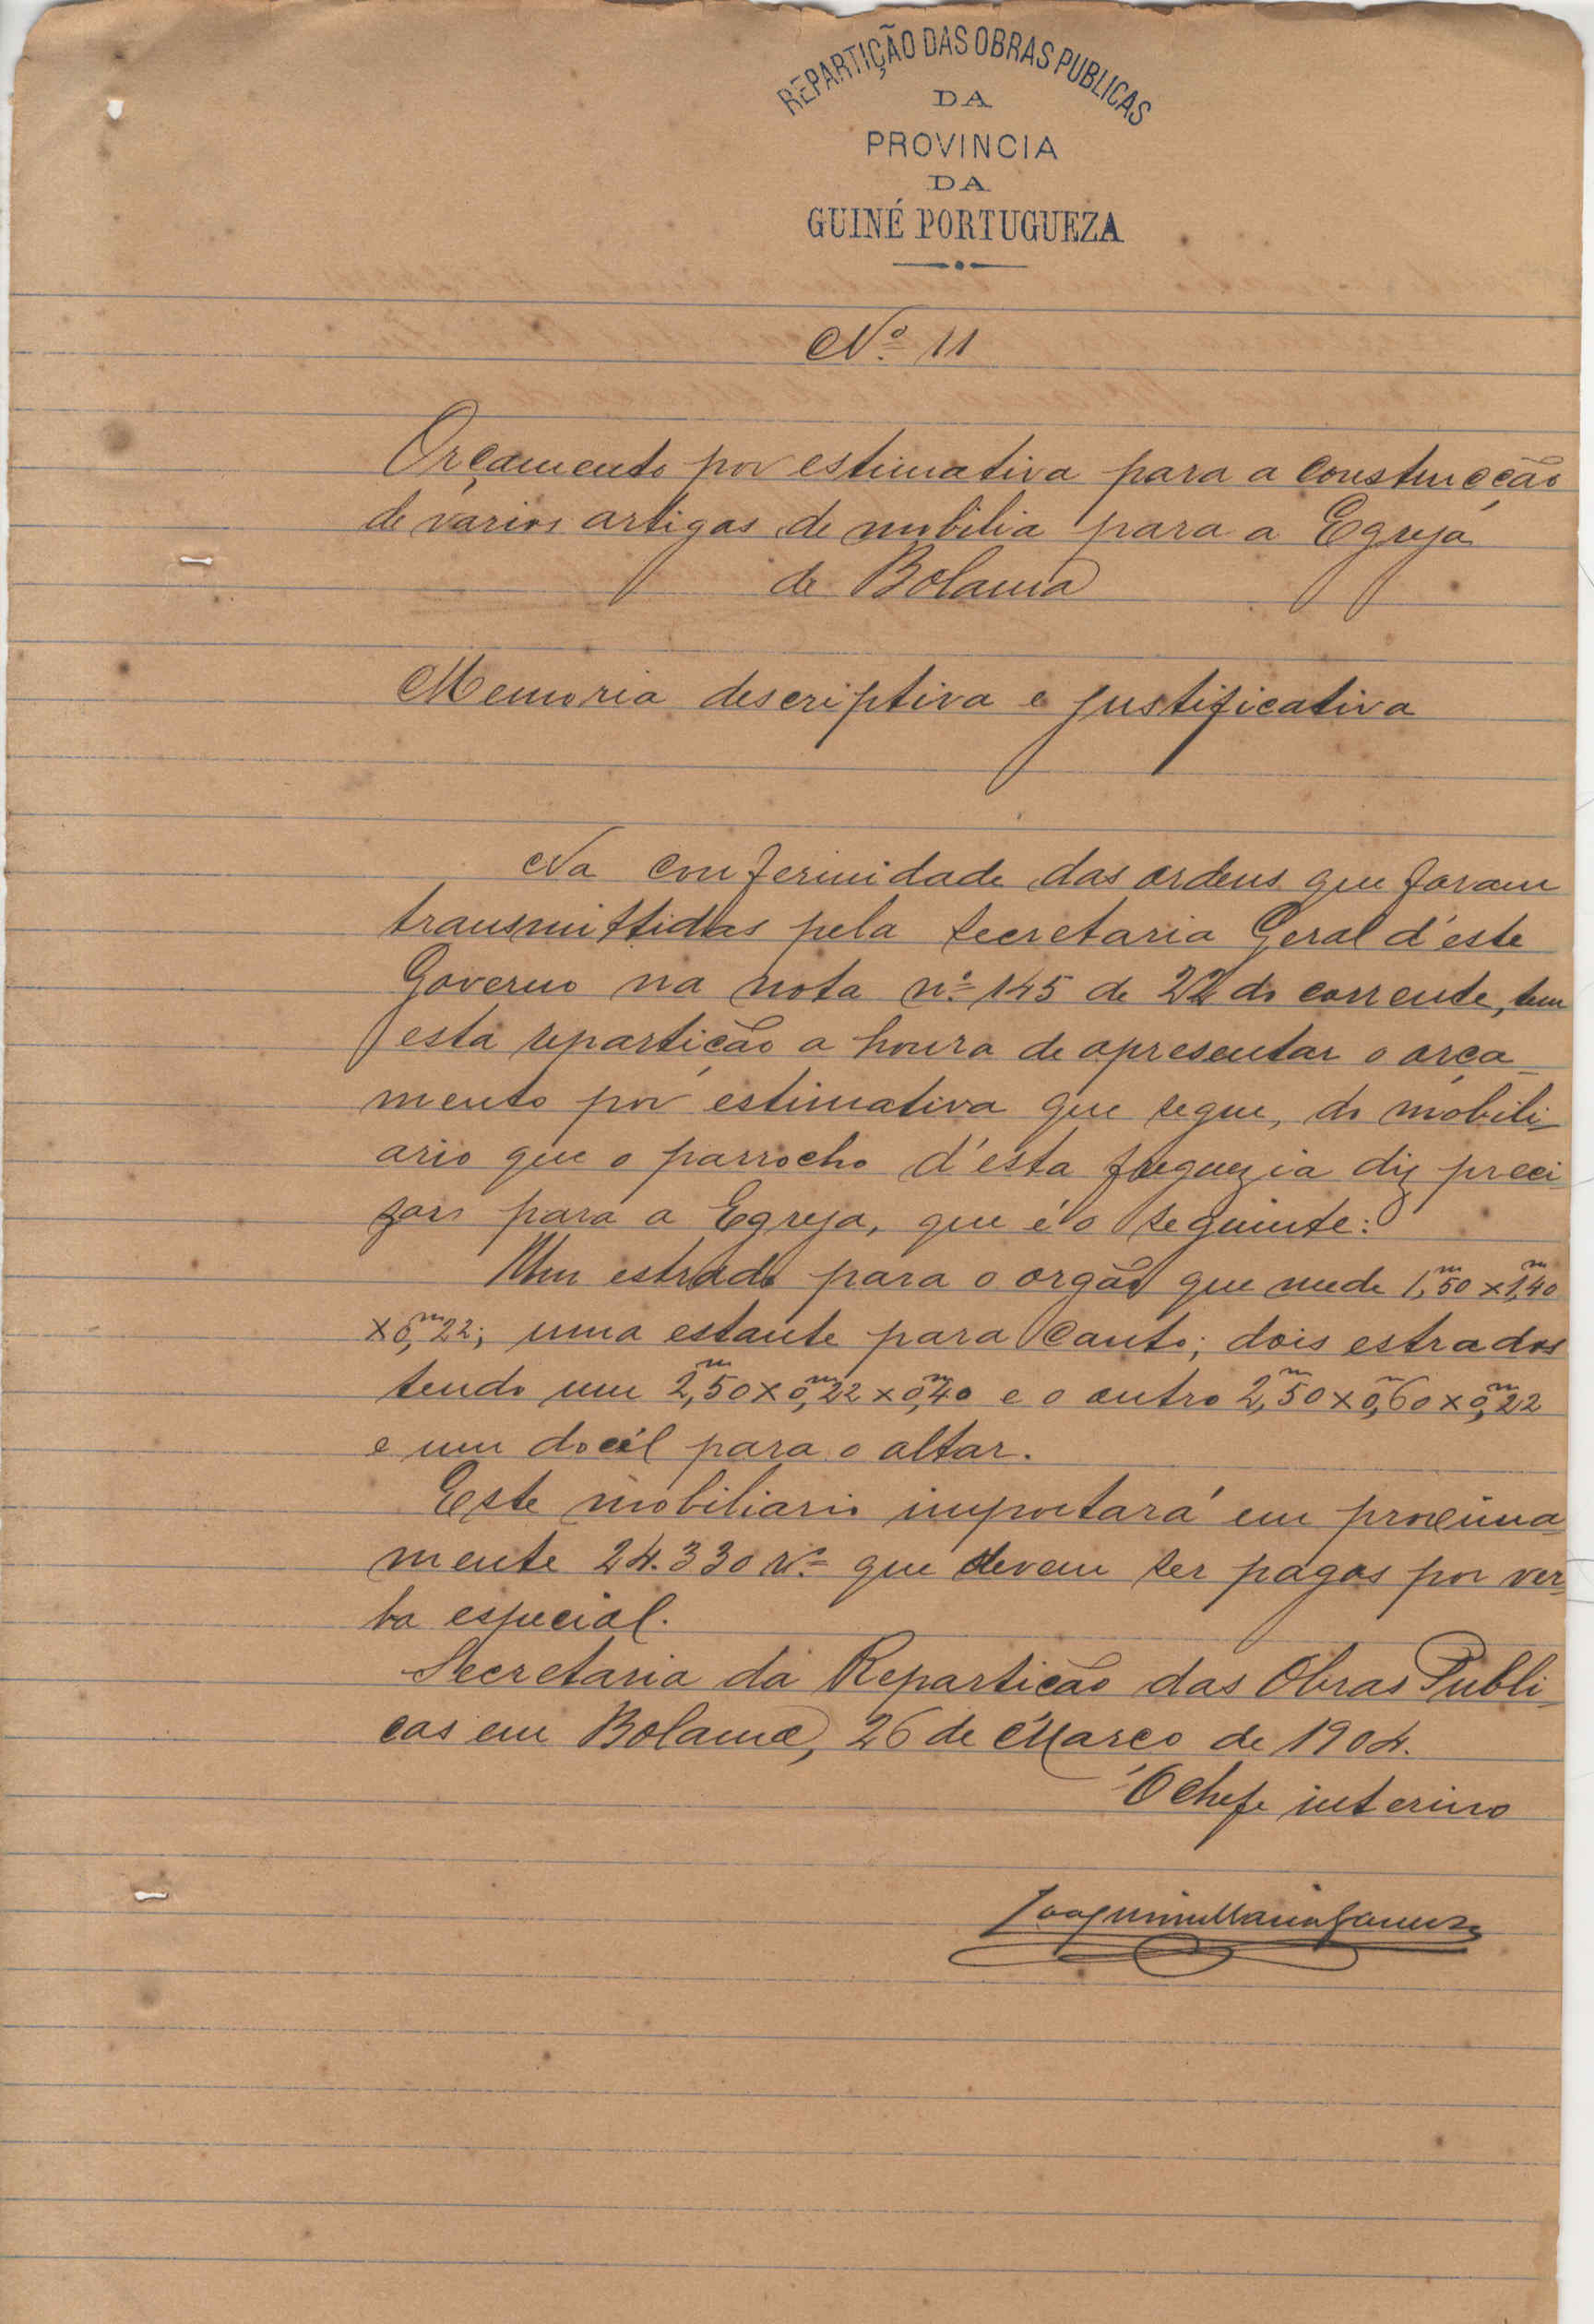 REPARTIÇÃO DAS OBRAS PUBLICAS
DA
PROVINCIA
DA
GUINÉ PORTUGUEZA
Nº 11
Orçamento por estimativa para a construcção
de varios artigos de mobilia para a Egreja
de Bolama
Memoria descriptiva e justificativa
Na conformidade das ordens que foram
transmittidas pela Secretaria Geral d'este
Governo na nota nº 145 de 22 do corrente, tem
esta repartição a honra de apresentar o orça_
mento por estimativa que segue, do mobili_
ario que o parrocho d'esta freguezia diz preci
zar para a Egreja, que é o seguinte:
Um estrado para o orgão que mede 1,m50 x 1,m40
x 0,m22; uma estante para canto; dois estrados
tendo um 2,m50 x 0,m22 x 0,m40 e o outro 2,m50 x 0,m60 x 0,m22
e um docél para o altar.
Este mobiliario importará em proxima_
mente 24.330 rs que devem ser pagos por ver_
ba especial.
Secretaria da Repartição das Obras Publi_
cas em Bolama, 26 de Março de 1904.
O Chefe interino
Joaquim Maria